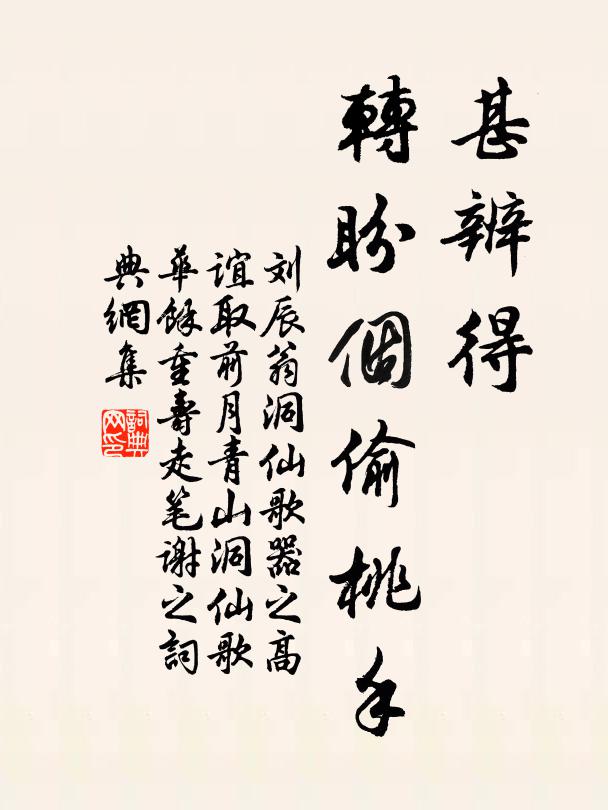 甚辨得
轉盼個偷桃手
刘辰翁洞仙歌器之高
誼取前月青山洞仙歌
華餘重壽走笔谢之詞
典網集
詞典网印